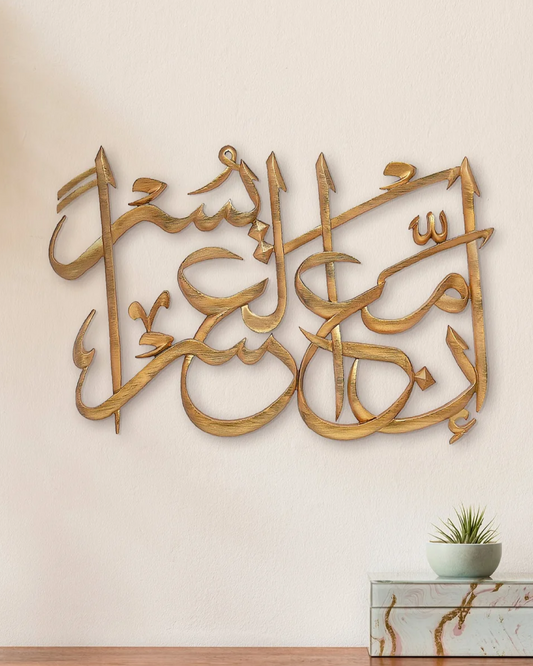 إِنَّ مَعَ العُسْرِ يُسْرًا